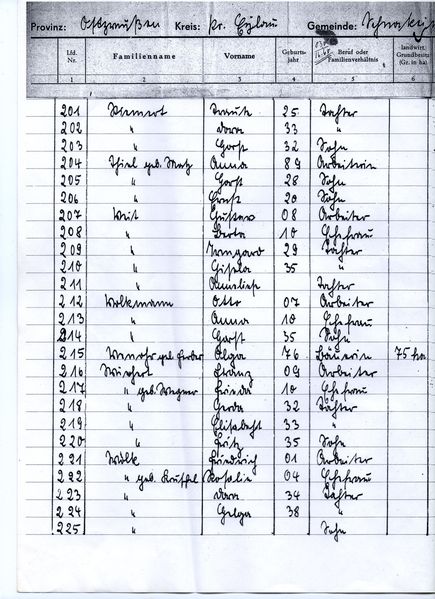 Provinz: Ostpreußen Kreis: Pr. Eylau Gemeinde:
Lfd. Nr. Familienname Vorname Geburts-jahr Beruf oder Familienverhältnis landwirt. Grundbesitz (Gr. in ha)
1 2 3 4 5 6
201 Traute 25 Tochter
202 " Dora 33 "
203 " Horst 32 Sohn
204 Thiel geb. Anna 89 Arbeiterin
205 " Horst 28 Sohn
206 " Ernst 20 Sohn
207 Weit Gustav 08 Arbeiter
208 " Berta 10 Ehefrau
209 " Irmgard 29 Tochter
210 " Gisela 35 "
211 " Anneliese Tochter
212 Wolkmann Otto 07 Arbeiter
213 " Anna 10 Ehefrau
214 " Horst 35 Sohn
215 geb. Olga 76 Bäuerin 75 ha
216 Wiechert Franz 09 Arbeiter
217 " geb. Wegner Frieda 10 Ehefrau
218 " Gerda 32 Tochter
219 " Elisabeth 33 "
220 " Fritz 35 Sohn
221 Wölk Friedrich 01 Arbeiter
222 " geb. Rosalie 04 Ehefrau
223 " Dora 34 Tochter
224 " Helga 38 "
225 " Sohn